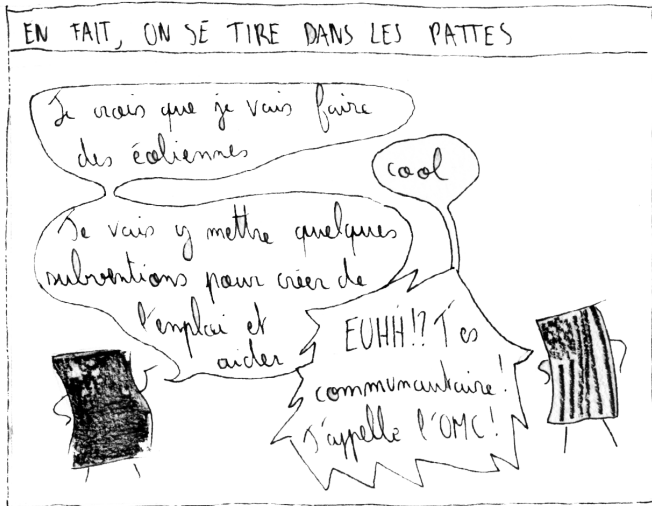 EN FAIT, ON SE TIRE DANS LES PATTES
Je crois que je vais faire
des éoliennes
cool
Je vais y mettre quelques
subventions pour créer de
l'emploi et
aider
EUHH!? T'es
communautaire!
J'appelle l'OMC!